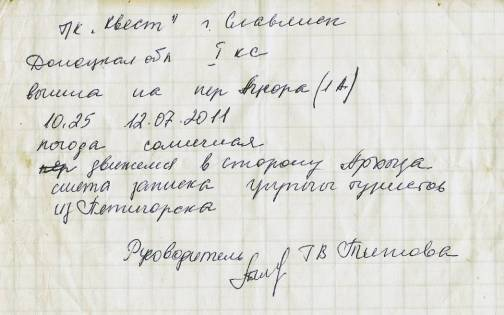 ТК „Квест" г. Славянск
Донецкая обл I кс
вышла на пер Агура (1А)
10.25 12.07.2011
погода солнечная
движемся в сторону Архыза
снята записка группы туристов
из Пятигорска
Руководитель ГВ Титова